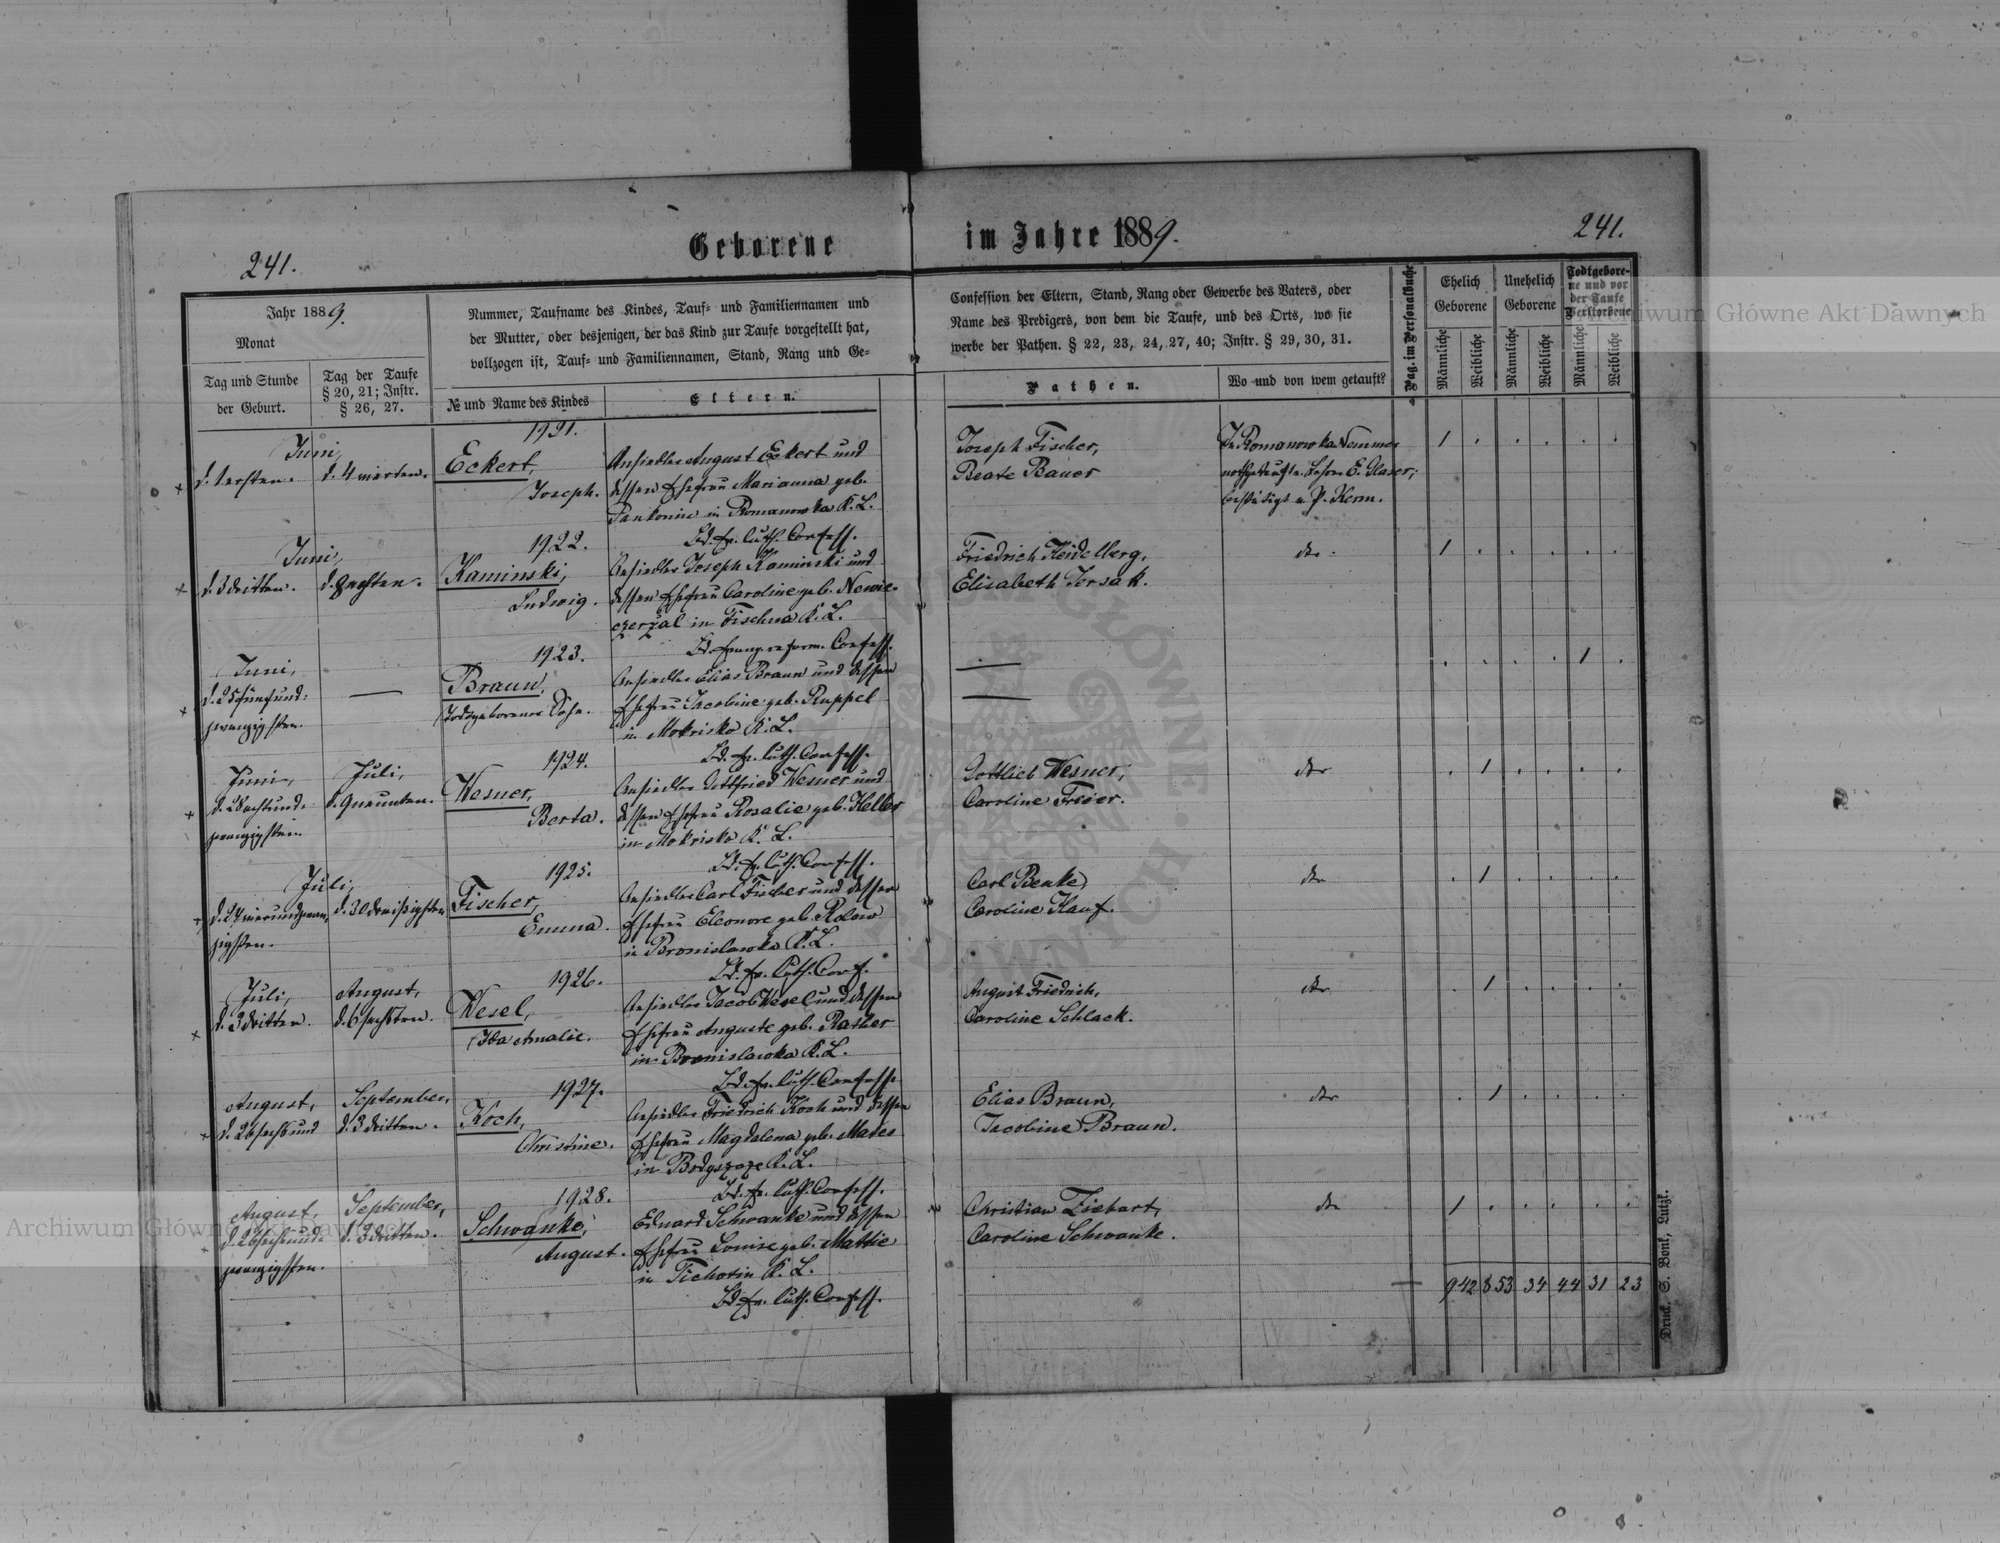 Geborene im Jahre 1889.
241.
241.
Jahr 1889.
Monat
Tag und Stunde
der Geburt.
Tag der Taufe
§ 20, 21; Instr.
§ 26, 27.
Nummer, Taufname des Kindes, Tauf- und Familiennamen und
der Mutter, oder desjenigen, der das Kind zur Taufe vorgestellt hat,
vollzogen ist, Tauf- und Familiennamen, Stand, Rang und Ge-
№ und Name des Kindes
Eltern.
Confession der Eltern, Stand, Rang oder Gewerbe des Vaters, oder
Name des Predigers, von dem die Taufe, und des Orts, wo sie
werbe der Pathen. § 22, 23, 24, 27, 40; Instr. § 29, 30, 31.
Pathen.
Wo und von wem getauft?
Pag. im Personalbuche
Ehelich
Geborene
Unehelich
Geborene
Todtgebore-
ne und vor
der Taufe
Verstorbene
Männliche
Weibliche
Männliche
Weibliche
Männliche
Weibliche
1921.
Juni,
d. 1 ersten. d. 4 vierten.
Eckert,
Joseph.
Ansiedler August Eckert und
dessen Ehefrau Marianna geb.
in Romanowka K. L.
Bd. ev. luth. Confess.
Joseph Fischer,
Beate Bauer
In Romanowka
E. Glaser,
bestätigt v. P. Kerm.
1
1922.
Juni,
d. 3 dritten.
Kaminski,
Ludwig.
Ansiedler Joseph Kaminski und
dessen Ehefrau Caroline geb. Newie-
czerzal in K. L.
Confess.
Friedrich Heidelberg,
Elisabeth
1
1923.
Juni,
d. 25 fünfund-
zwanzigsten.
Braun,
Todtgeborener Sohn.
Ansiedler Elias Braun und dessen
Ehefrau Jacobine geb. Ruppel
in Mokrisko K. L.
Bd. ev. luth. Confess.
1
1924.
Juni,
d. 28 achtund-
zwanzigsten.
Juli,
d. 9 neunten.
Wesner,
Berta.
Ansiedler Gottfried Wesner und
dessen Ehefrau Rosalie geb. Heller
in Mokrisko K. L.
Bd. ev. luth. Confess.
Gottlieb Wesner,
Caroline Freier.
1
1925.
Juli,
d. 24 vierundzwan-
zigsten.
d. 30 dreißigsten
Fischer,
Emma.
Ansiedler Carl Fischer und dessen
Ehefrau Eleonore geb. Rolow
in Bronislawka K. L.
Bd. ev. luth. Conf.
Carl Benke,
Caroline
1
1926.
Juli,
d. 3 dritten.
August,
d. 6 sechsten.
Wesel,
Ida Amalie.
Ansiedler Jacob Wesel und dessen
Ehefrau Auguste geb.
in Bronislawka K. L.
Bd. ev. luth. Confess.
August Friedrich,
Caroline Schlack.
1
1927.
August,
d. 26 sechsund
September,
d. 3 dritten.
Koch,
Christine.
Ansiedler Friedrich Koch und dessen
Ehefrau Magdalena geb.
in K. L.
Bd. ev. luth. Confess.
Elias Braun,
Jacobine Braun.
1
1928.
August,
d. 26 sechsund-
zwanzigsten.
September,
d. 3 dritten.
Schwanke,
August.
Eduard Schwanke und dessen
Ehefrau Louise geb. Mattie
in K. L.
Bd. ev. luth. Confess.
Christian Ziebart,
Caroline Schwanke.
1
942 853 34 44 31 23
Druck. S. Bonk, Lutzk.
Archiwum Główne Akt Dawnych
Archiwum Główne Akt Dawnych